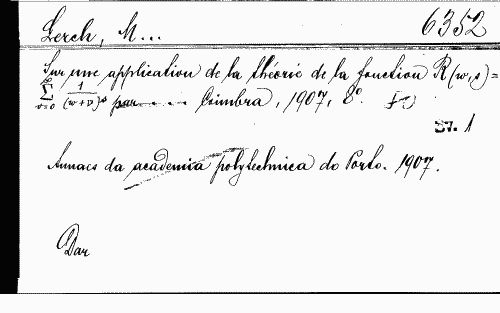 Lerch, M... 6352
Sur une application de la théorie de la fonction R(w,s) =
∑ν=0 1/(w+ν)^s par . . . . Coimbra, 1907, 8º.
57. 1
Annaes da academia polytechnica do Porto. 1907.
Dar